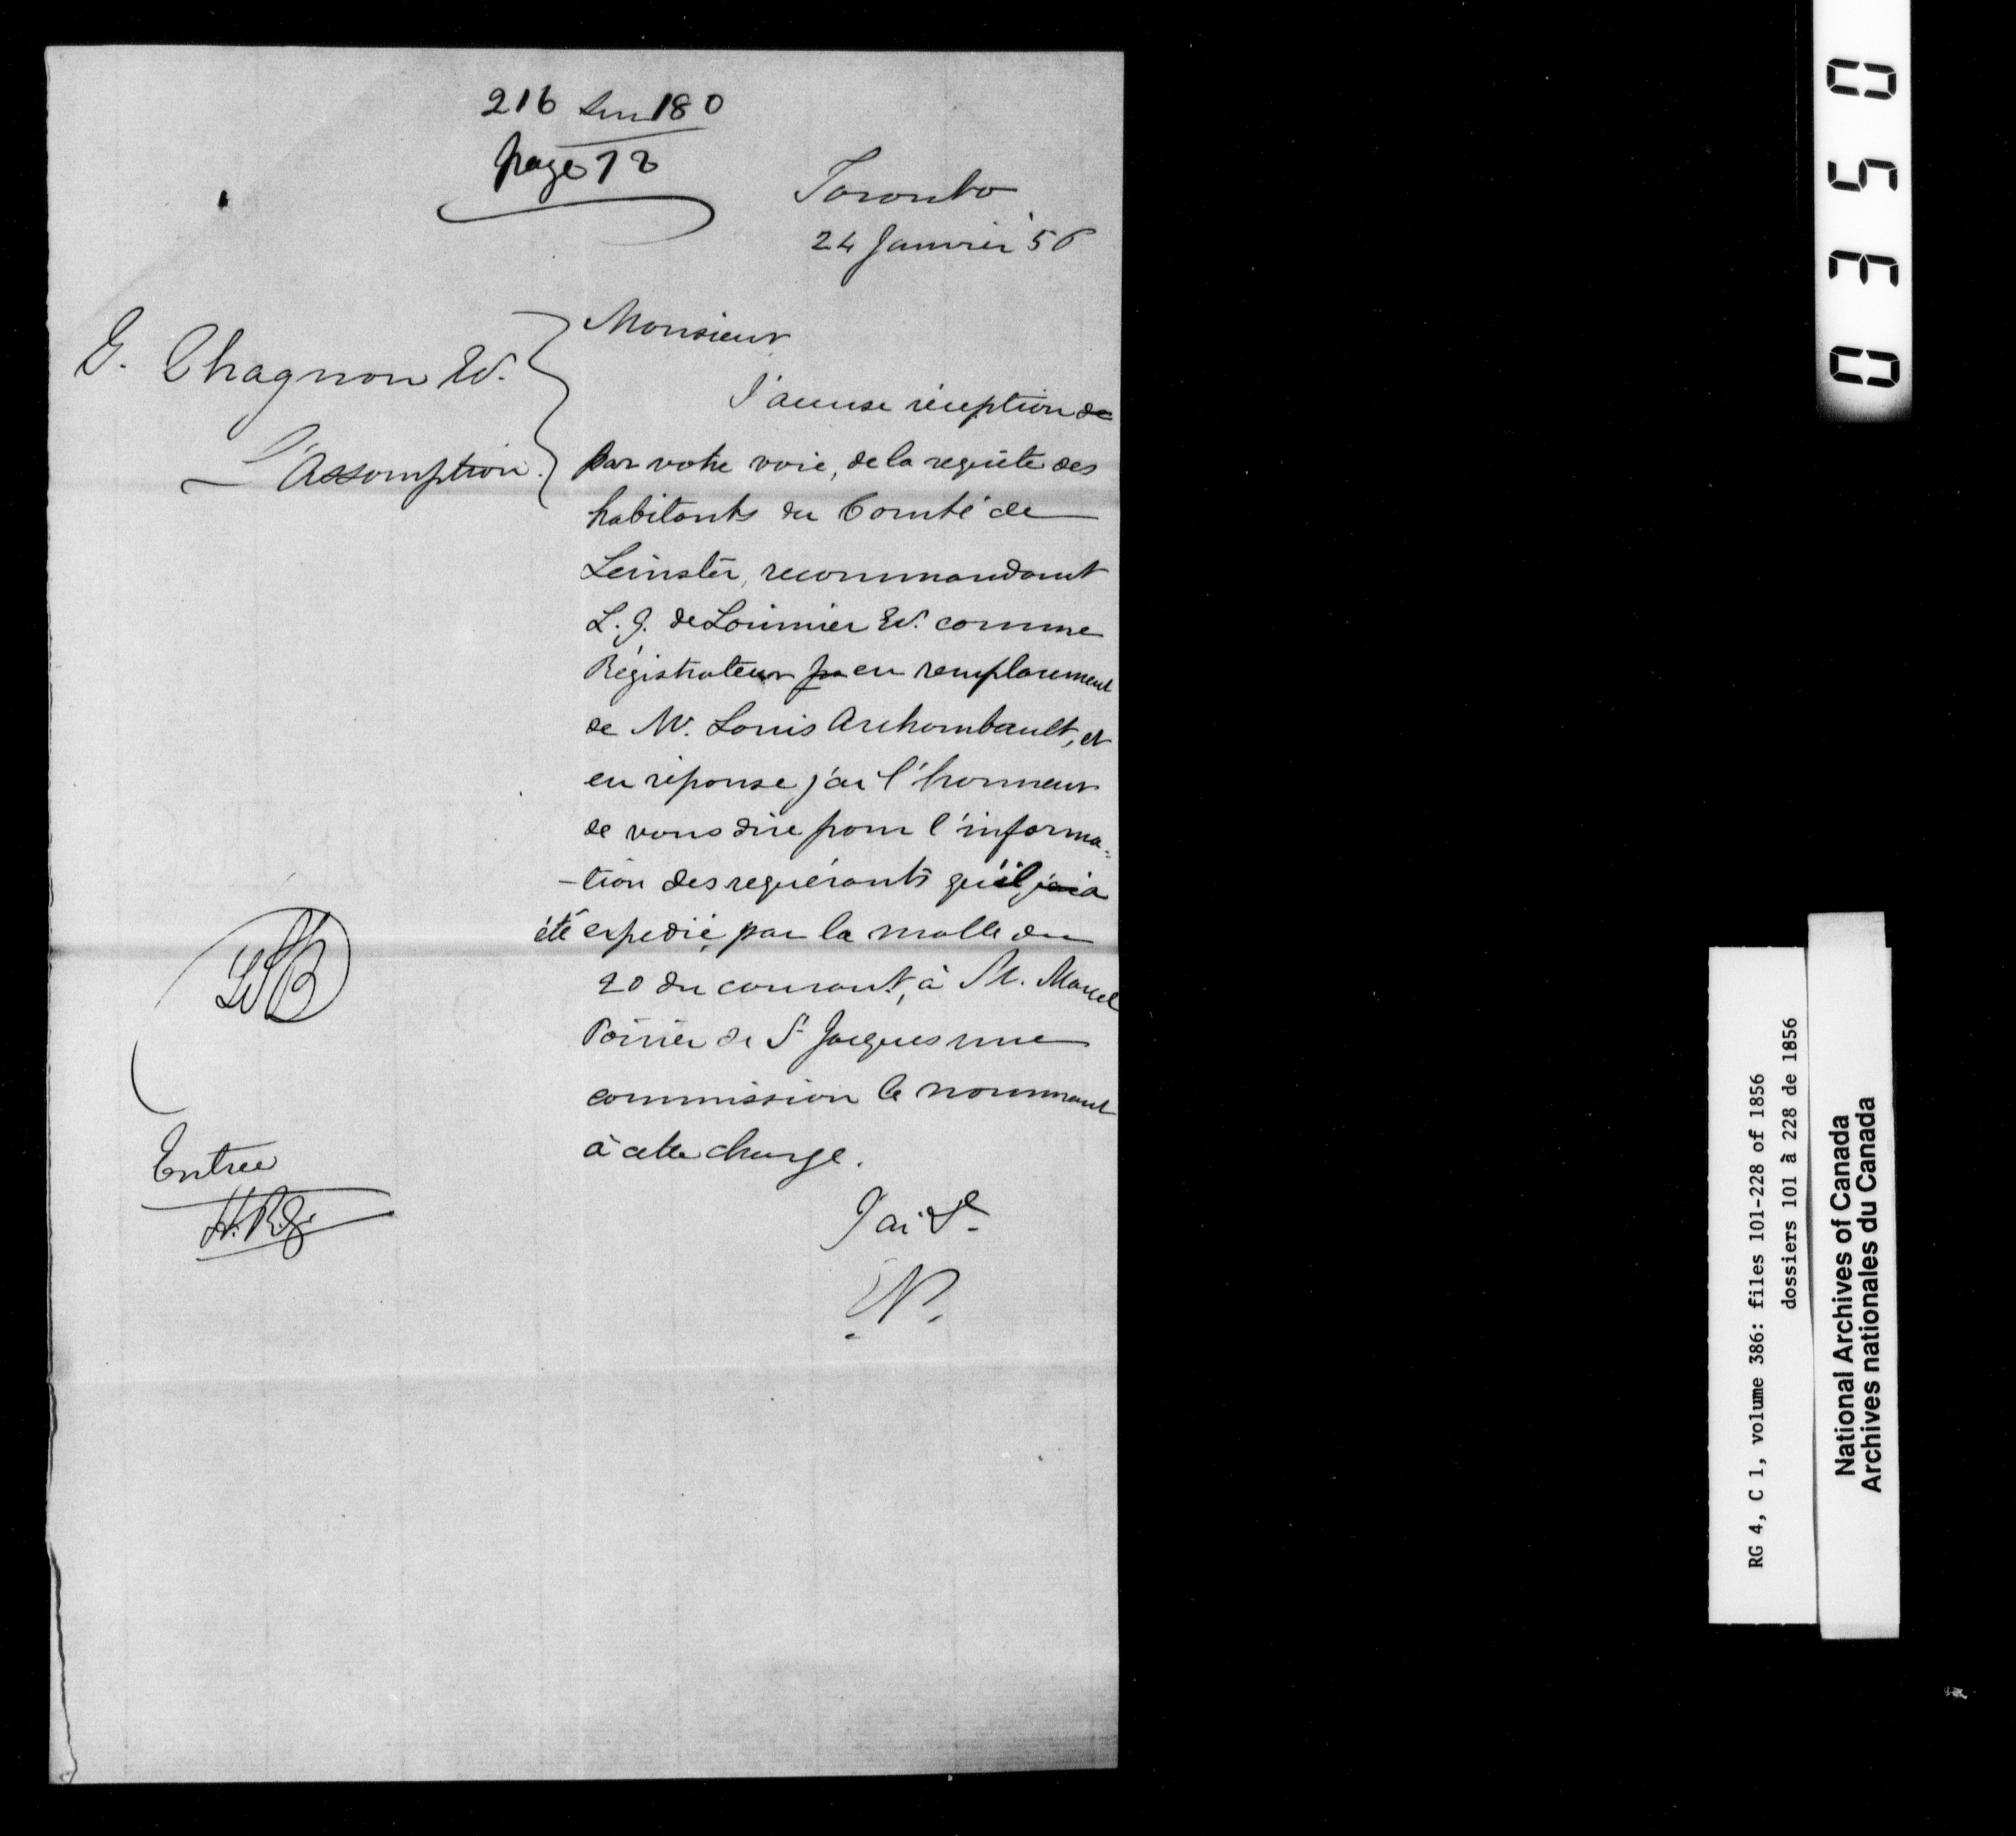 216 sur 180
page 72
Toronto
24 Janvier '56
G. Chagnon Ecr.
L'Assomption.
Monsieur
J'accuse réception de
par votre voie, de la requête des
habitants du Comté de
Leinster, recommandant
L. G. de Lorimier Ecr. comme
Régistrateur en remplacement
de Mr. Louis Archambault, et
en réponse j'ai l'honneur
de vous dire pour l'informa-
-tion des requérants qu'il a
été expedié par la malle du
20 du courant, à Mr. Marcel
Poirier de St Jacques une
commission le nommant
à cette charge.
J'ai &c
Entrée
0530
RG 4, C 1, volume 386: files 101-228 of 1856
dossiers 101 à 228 de 1856
National Archives of Canada
Archives nationales du Canada